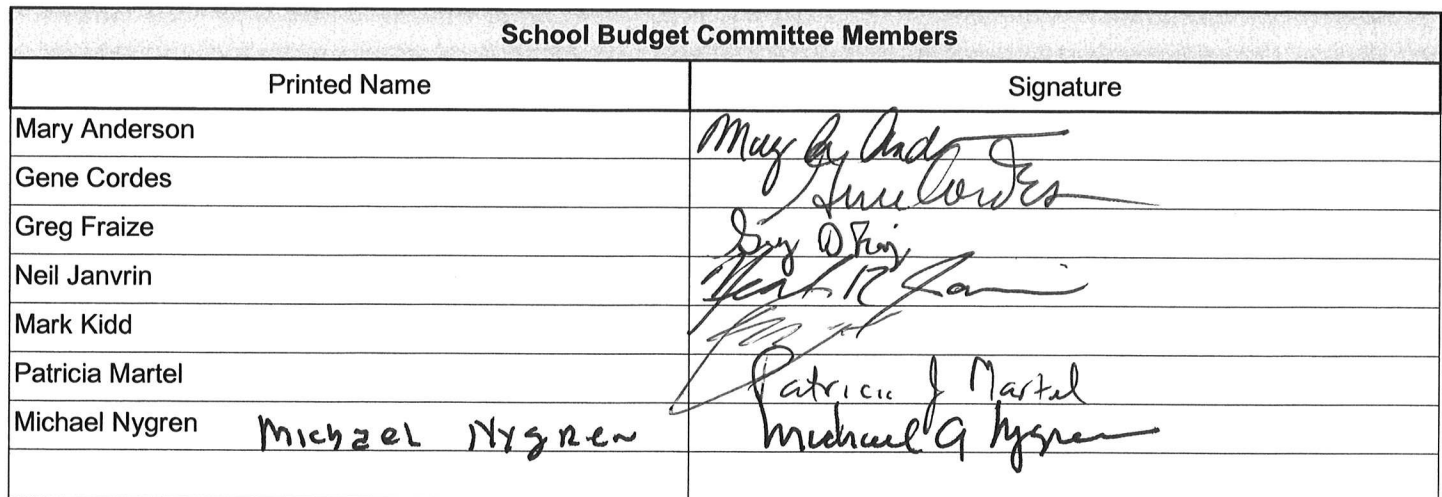 School Budget Committee Members
Printed Name Signature
Mary Anderson
Gene Cordes Gene Cordes
Greg Fraize
Neil Janvrin
Mark Kidd
Patricia Martel Patricia J Martel
Michael Nygren Michael Nygren Michael G Nygren